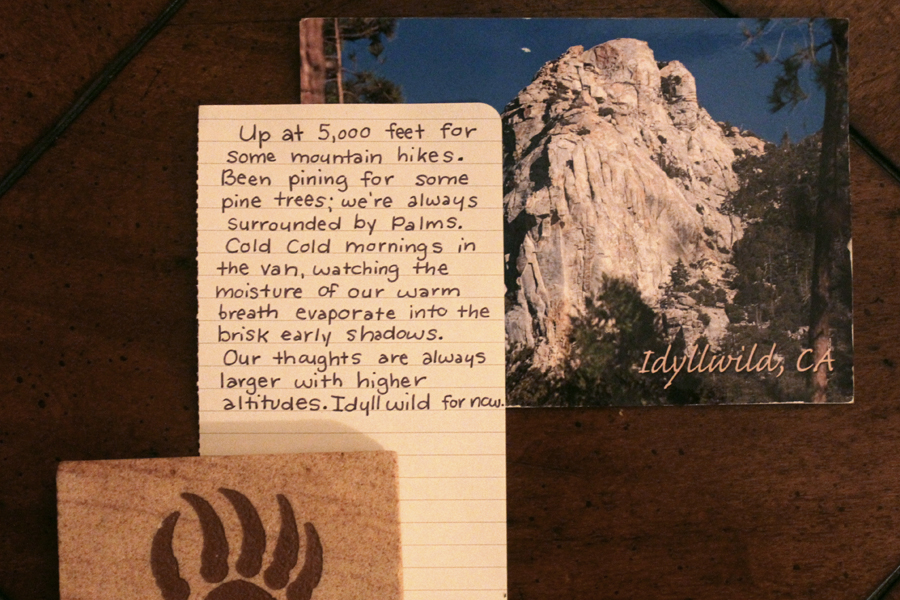 Up at 5,000 feet for
some mountain hikes.
Been pining for some
pine trees; we're always
surrounded by Palms.
Cold Cold mornings in
the van, watching the
moisture of our warm
breath evaporate into the
brisk early shadows.
Our thoughts are always
larger with higher
altitudes. Idyllwild for now.
Idyllwild, CA